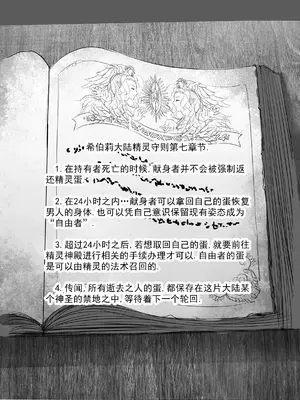 希伯莉大陆精灵守则第七章节.
1.在持有者死亡的时候,献身者并不会被强制返
还精灵蛋.
2.在24小时之内…献身者可以拿回自己的蛋恢复
男人的身体.也可以凭自己意识保留现有姿态成为
“自由者”.
3.超过24小时之后,若想取回自己的蛋,就要前往
精灵神殿进行相关的手续办理才可以.自由者的蛋
是可以由精灵的法术召回的.
4.传闻,所有逝去之人的蛋.都保存在这片大陆某
个神圣的禁地之中,等待着下一个轮回.